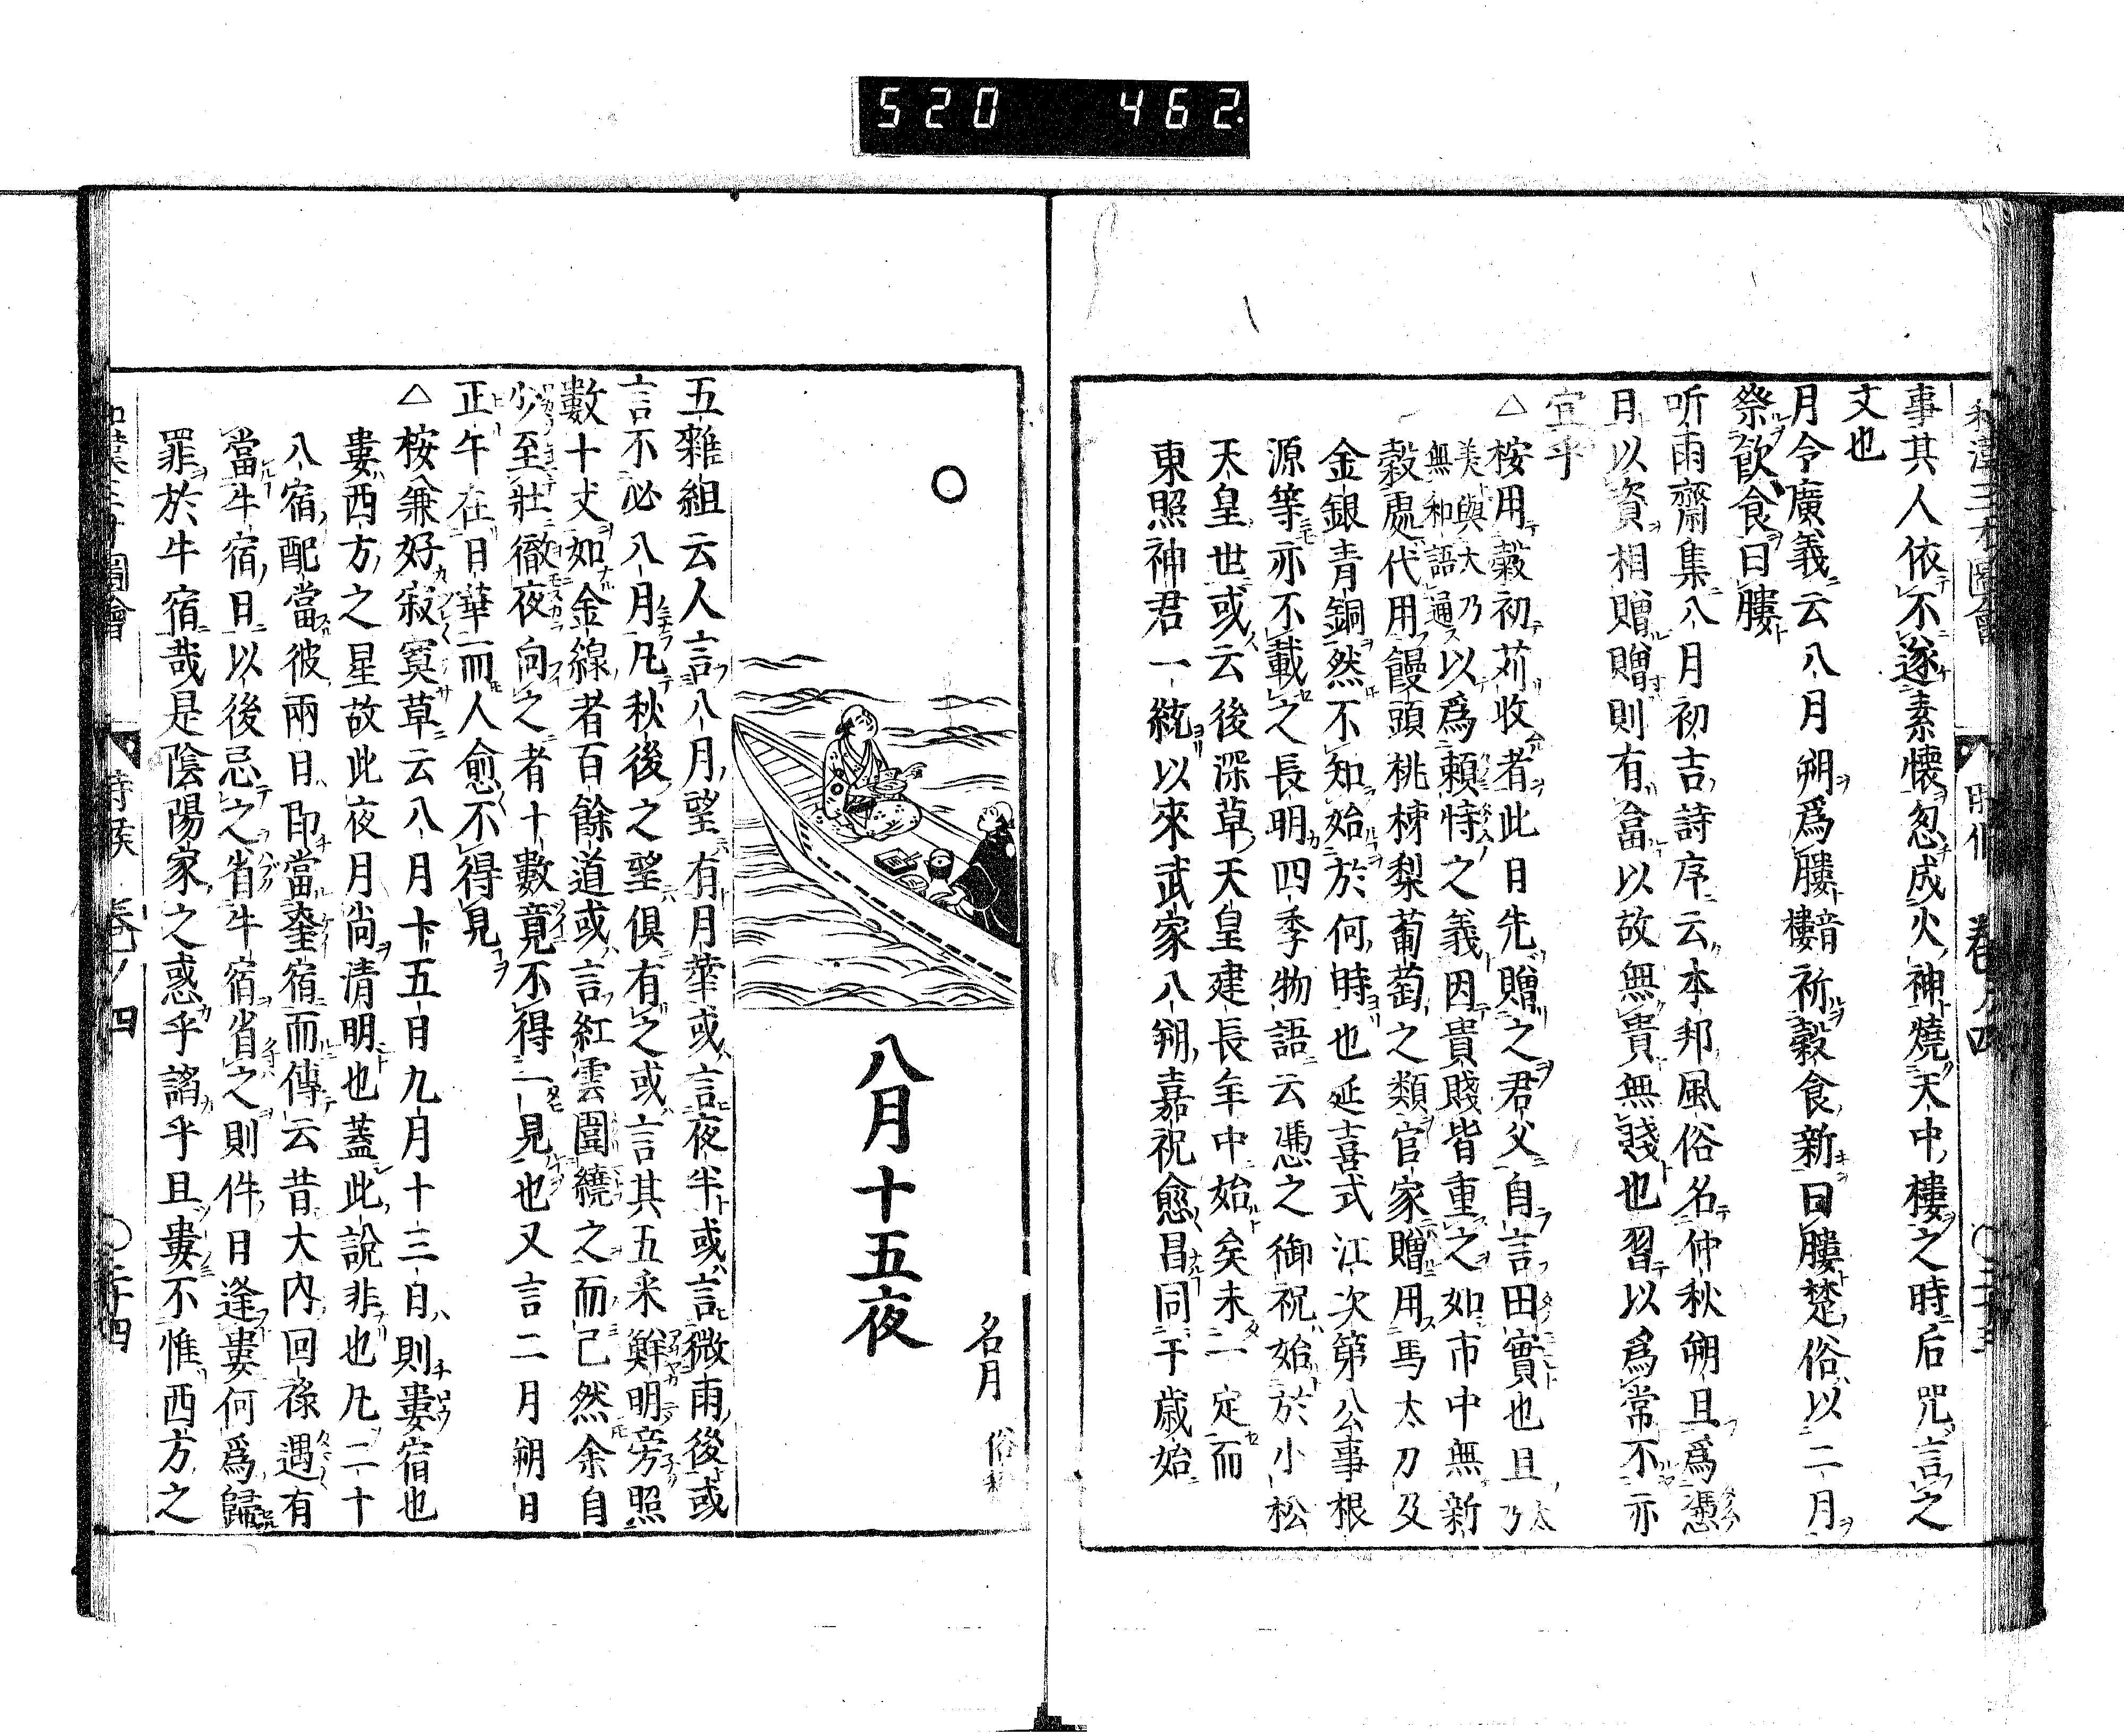 520 462.
事其人依不遂素懐忽成火神燒天中樓之時后咒言之
文也
月令廣義云八月朔爲膢音樓祈穀食新曰膢楚俗以二月
祭飮食曰膢
听雨齋集八月初吉詩序云本邦風俗名仲秋朔旦爲憑
日以資相贈贈則有畣以故無貴無賤也習以爲常不亦
宜乎
△桉用穀初苅收者此日先贈之君父自言田實也且
美與大乃無和語通以爲頼恃之義因貴賤皆重之如市中無新
穀處代用饅頭桃楝梨葡萄之類官家贈用馬太刀及
金銀青銅然不知始於何時也延喜式江次第公事根
源等亦不載之長明四季物語云憑之御祝始於小松
天皇世或云後深草天皇建長年中始矣未一定而
東照神君一統以來武家八朔嘉祝愈昌同于歳始
八月十五夜
名月 俗稱
五雜組云人言八月望有月華或言夜半或言微雨後或
言不必八月凡秋後之望俱有之或言其五采鮮明旁照
數十丈如金線者百餘道或言紅雲圍繞之而已然余自
少至壯徹夜向之者十數竟不得一見也又言二月朔日
正午在日華而人愈不得見
△桉兼好寂寞草云八月十五日九月十三日則婁宿也
婁西方之星故此夜月尚清明也蓋此說非也凡二十
八宿配當彼兩日即當奎宿而傳云昔大内回祿遇有
當牛宿日以後忌之省牛宿省之則件日逢婁何爲歸
罪於牛宿哉是陰陽家之惑乎謟乎且婁不惟西方之